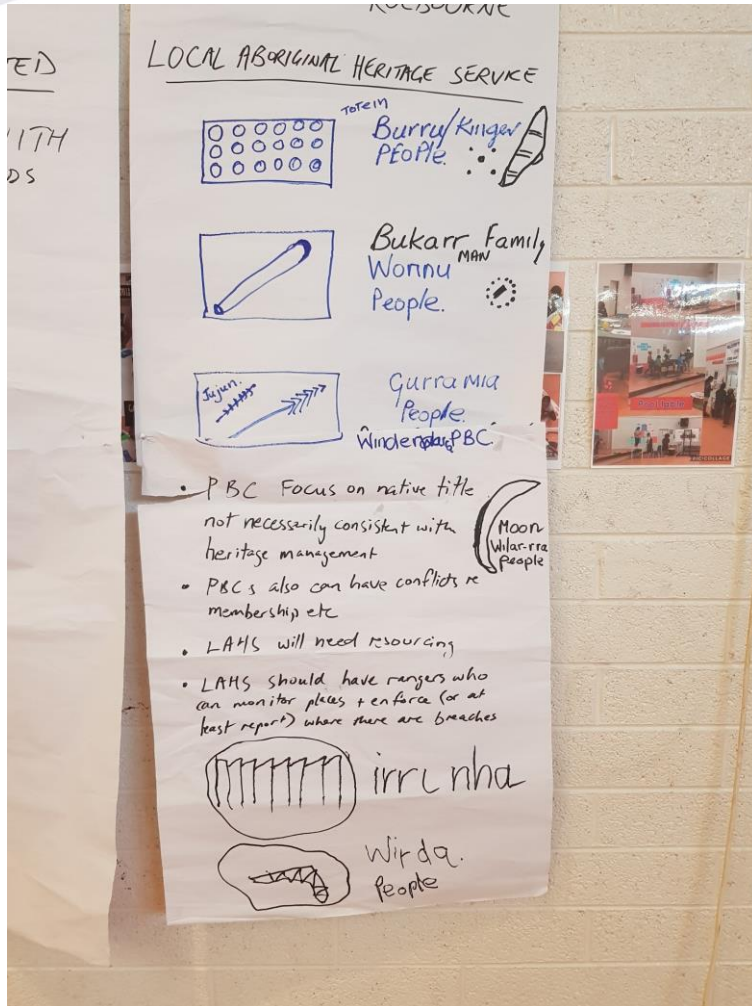 ROEBOURNE
TED
ITH
DS
LOCAL ABORIGINAL HERITAGE SERVICE
Totem
Burru/Kinger
PEOPle.
Bukarr Family
MAN
Wornu
People.
Jujun.
Gurrama
People.
PBC.
• PBC Focus on native title
not necessarily consistent with
heritage management
Moon
Wilar-rra
People
• PBCs also can have conflicts re
membership etc
• LAHS will need resourcing
• LAHS should have rangers who
can monitor places + enforce (or at
least report) where there are breaches
Wirda.
People